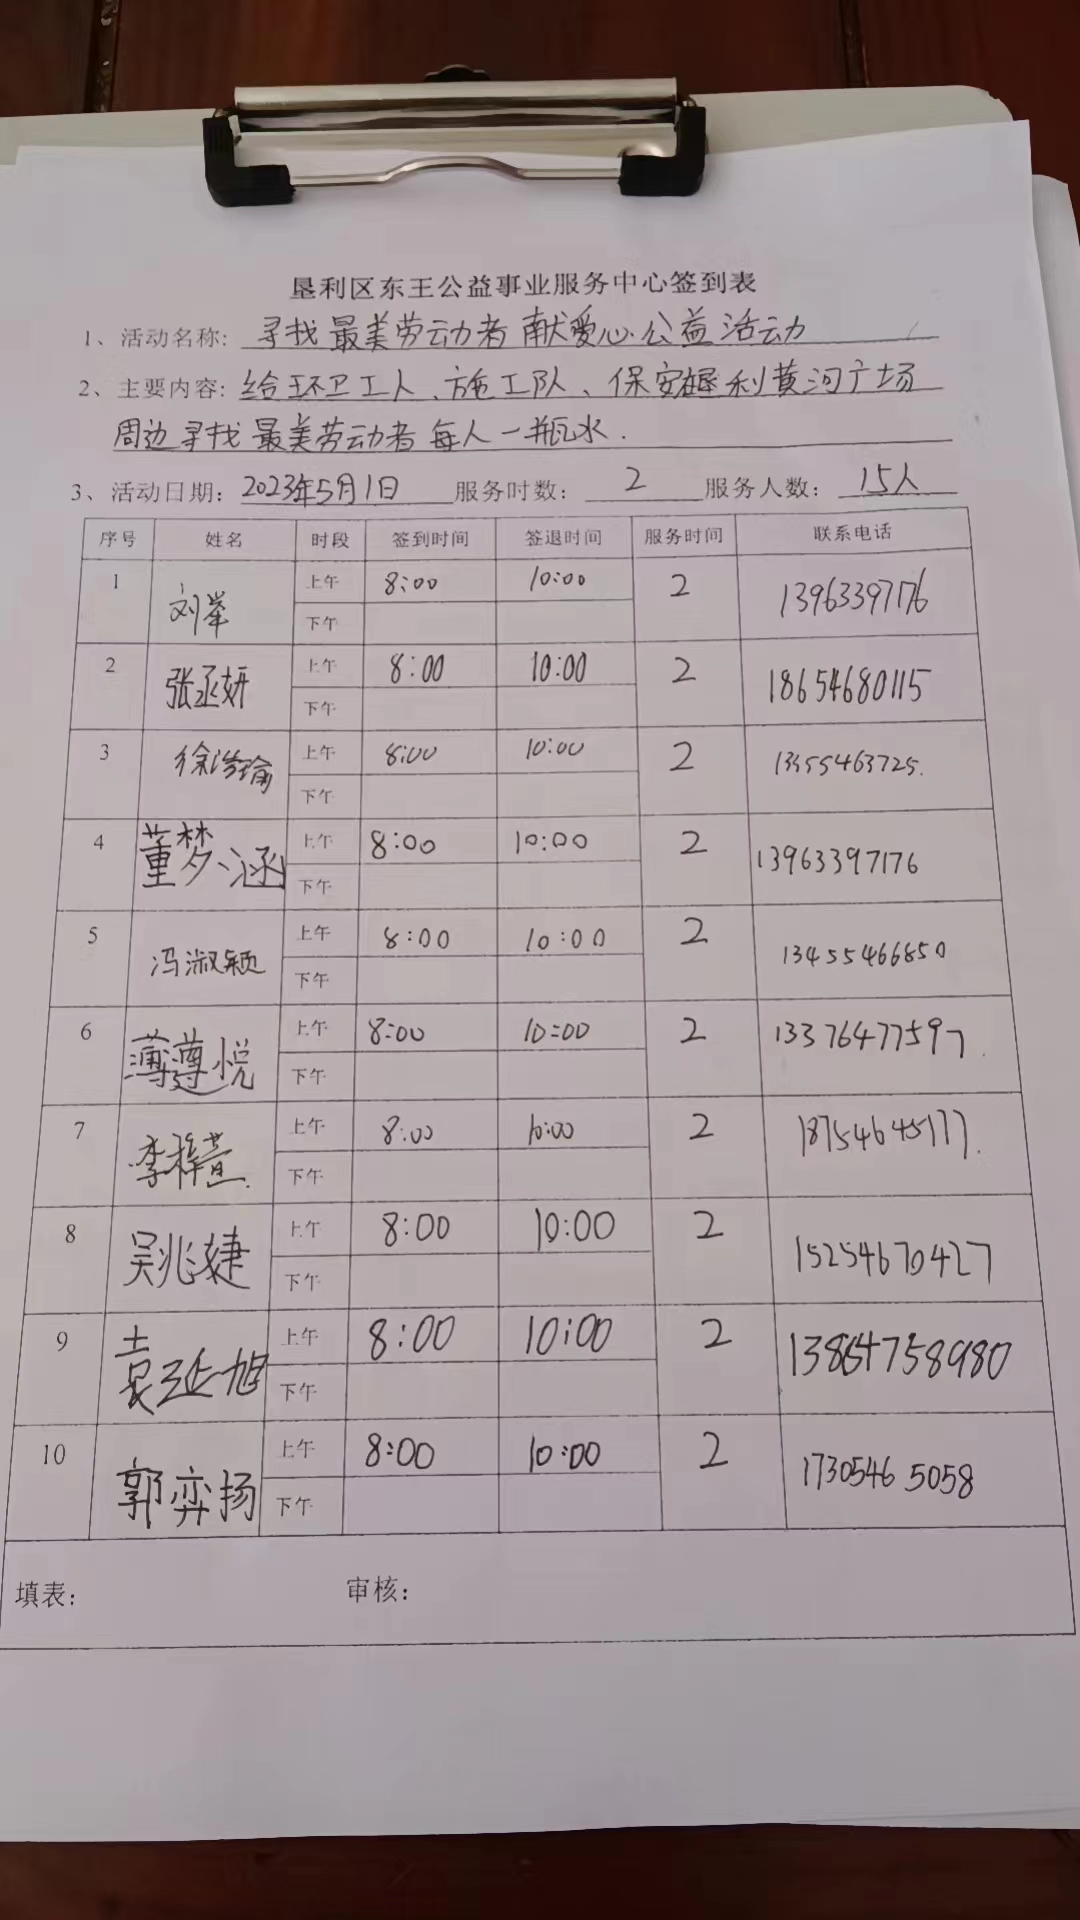 垦利区东王公益事业服务中心签到表
1、活动名称: 寻找最美劳动者献爱心公益活动
2、主要内容: 给环卫工人、施工队、保安垦利黄河广场
周边寻找最美劳动者每人一瓶水.
3、活动日期: 2023年5月1日 服务时数: 2 服务人数: 15人
序号 姓名 时段 签到时间 签退时间 服务时间 联系电话
1 刘峯 上午 8:00 10:00 2 13963397176
下午
2 张丞妍 上午 8:00 10:00 2 18654680115
下午
3 徐浩瑜 上午 8:00 10:00 2 13455463725.
下午
4 董梦涵 上午 8:00 10:00 2 13963397176
下午
5 冯淑颖 上午 8:00 10:00 2 13455466850
下午
6 薄尊悦 上午 8:00 10:00 2 13376477597.
下午
7 李梓萱 上午 8:00 10:00 2 18754645177.
下午
8 吴兆婕 上午 8:00 10:00 2 15254670427
下午
9 袁延旭 上午 8:00 10:00 2 13864758980
下午
10 郭弈扬 上午 8:00 10:00 2 1730546 5058
下午
填表: 审核: